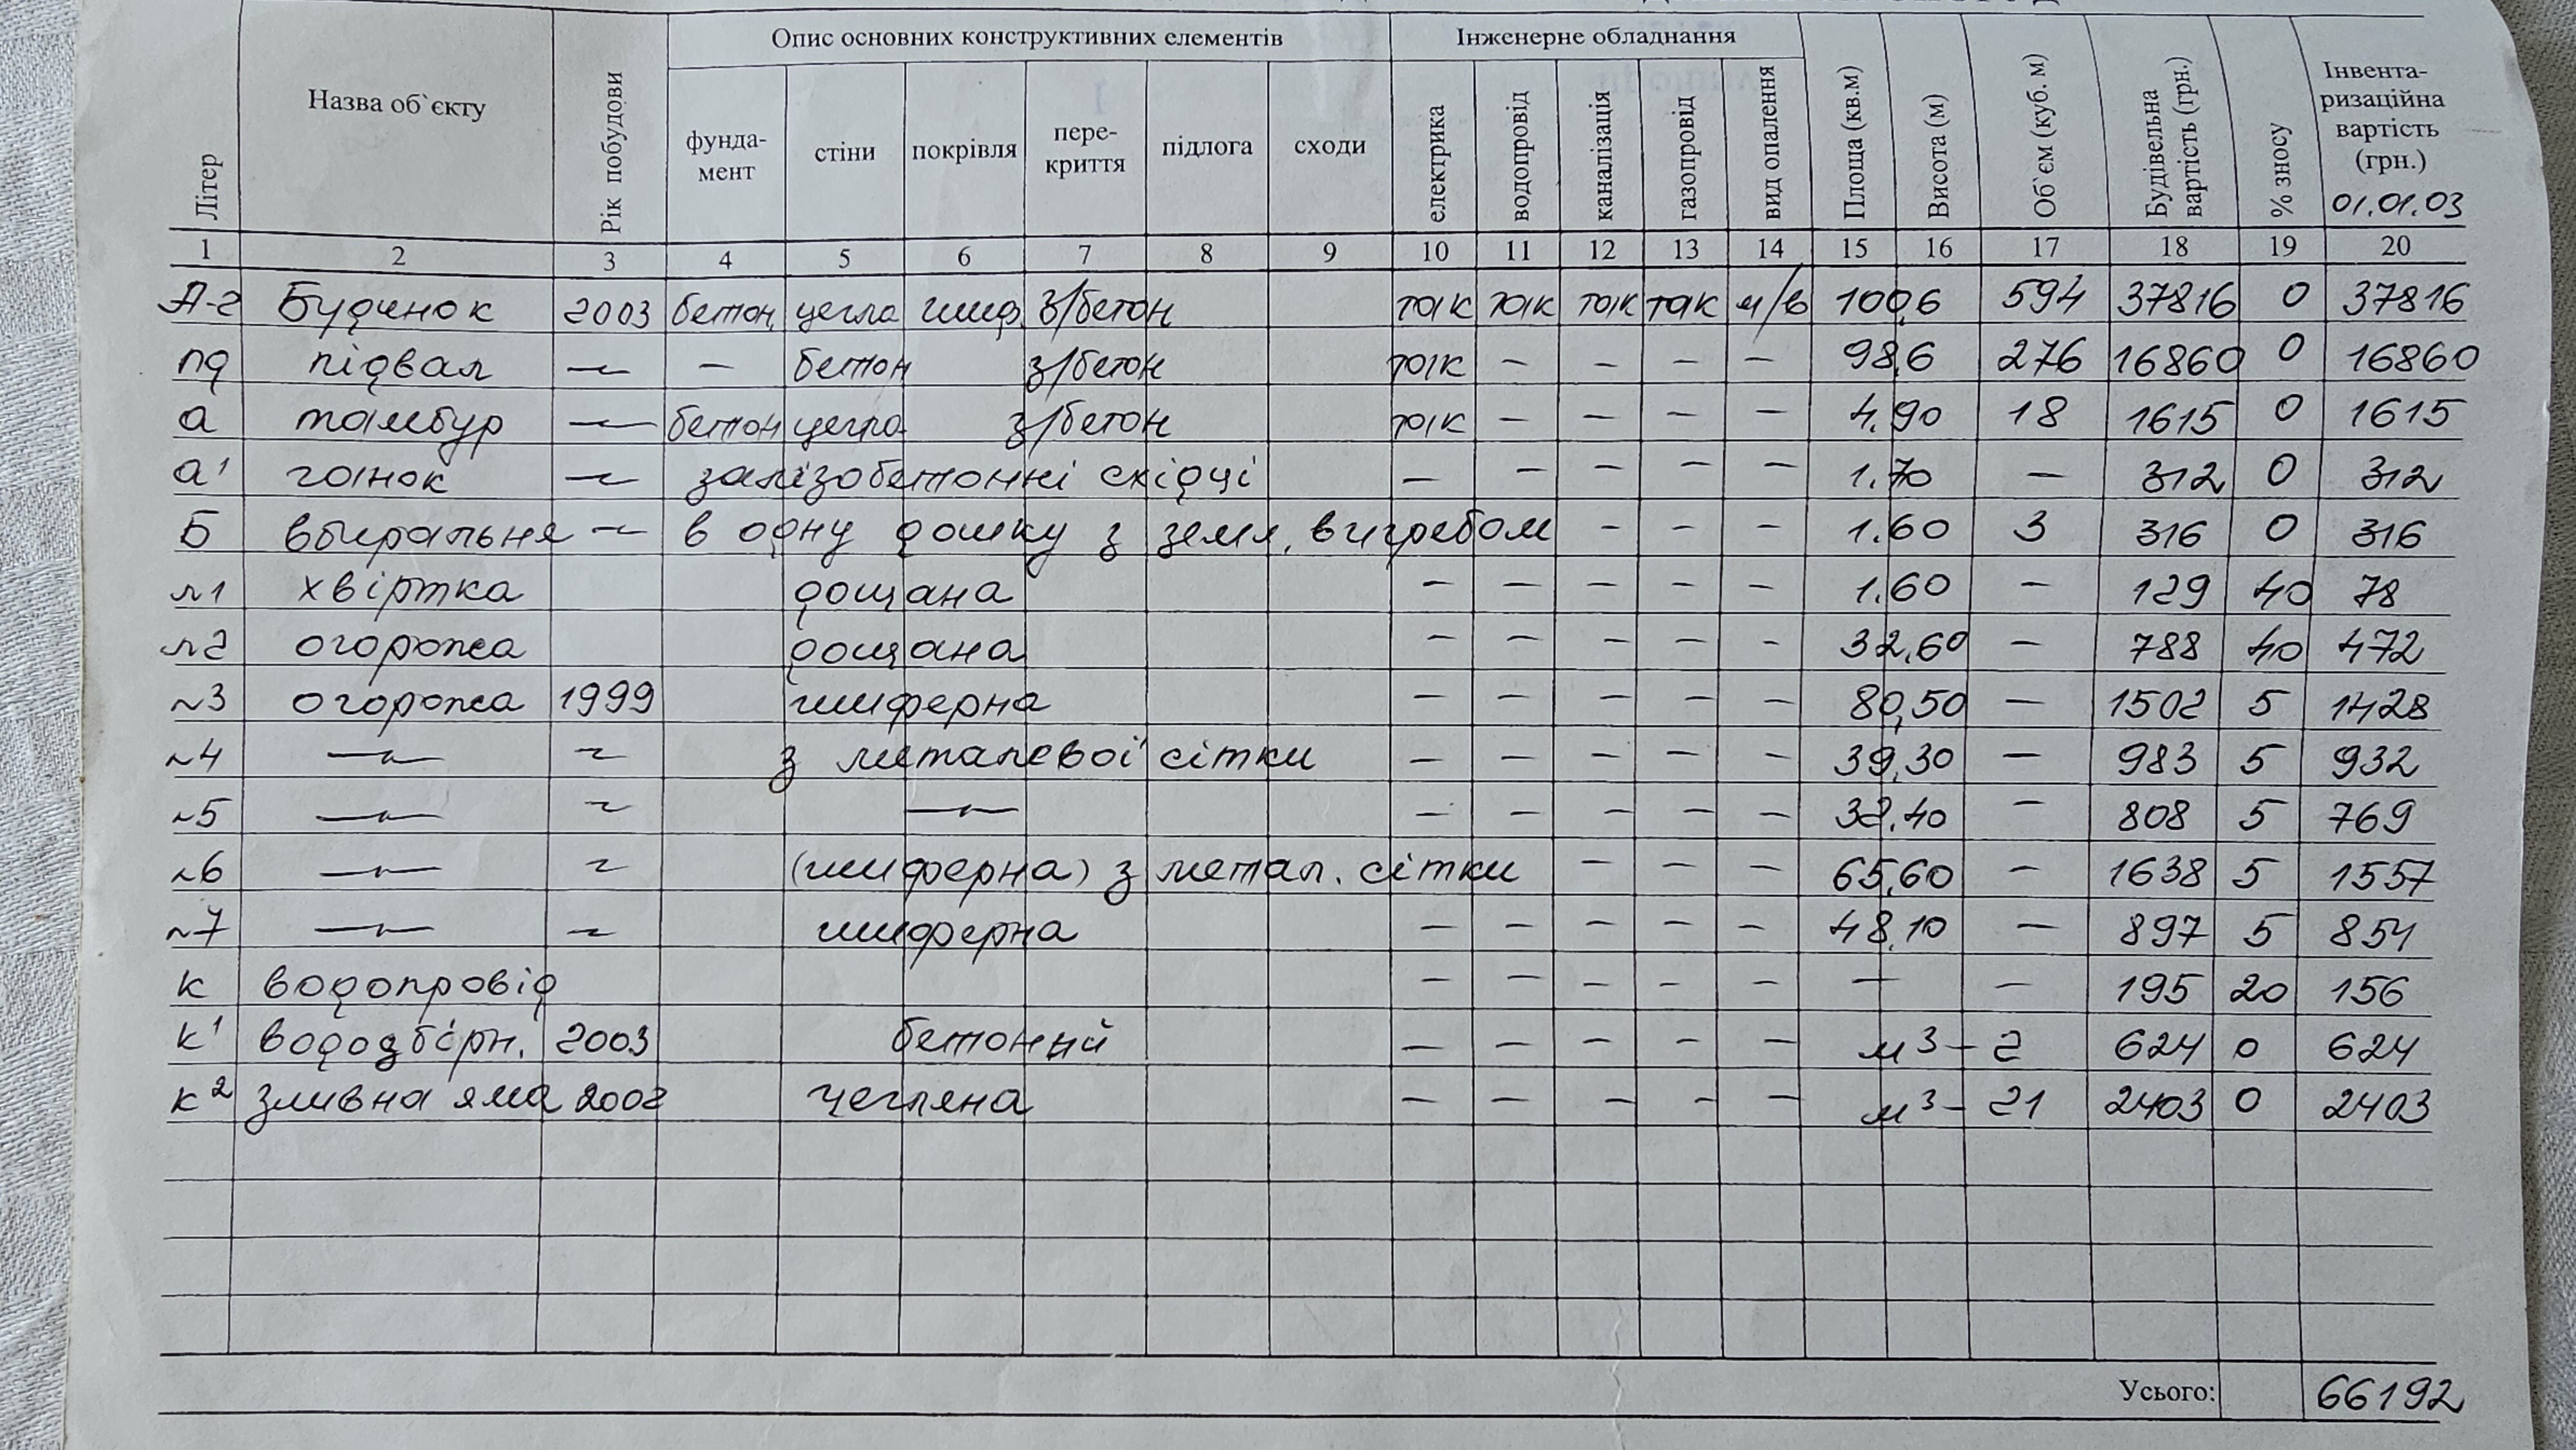 Опис основних конструктивних елементів Інженерне обладнання
Літер Назва об`єкту Рік побудови фунда-мент стіни покрівля пере-криття підлога сходи електрика водопровід каналізація газопровід вид опалення Площа (кв.м) Висота (м) Об`єм (куб. м) Будівельна вартість (грн.) % зносу Інвента-ризаційна вартість (грн.) 01.01.03
1 2 3 4 5 6 7 8 9 10 11 12 13 14 15 16 17 18 19 20
А-2 Будинок 2003 бетон. цегла шиф. з/бетон так так так так м/в 100,6 594 37816 0 37816
пд підвал — — бетон з/бетон так — — — — 98,6 276 16860 0 16860
а тамбур — бетон цегла з/бетон так — — — — 4.90 18 1615 0 1615
а¹ ганок — залізобетонні східці — — — — — 1.70 — 312 0 312
Б вбиральня — в одну дошку з земл. вигребом — — — 1.60 3 316 0 316
л1 хвіртка дощана — — — — — 1.60 — 129 40 78
л2 огорожа дощана — — — — - 32,60 — 788 40 472
~3 огорожа 1999 шиферна — — — — — 80,50 — 1502 5 1428
~4 —〃— ~ з металевої сітки — — — — — 39,30 — 983 5 932
~5 —〃— ~ —〃— — — — — — 32,40 — 808 5 769
~6 —〃— ~ (шиферна) з метал. сітки — — — 65,60 — 1638 5 1557
~7 —〃— ~ шиферна — — — — — 48,10 — 897 5 854
к водопровід — — — — — — — 195 20 156
к¹ водозбірн. 2003 бетонний — — — — — м³ — 2 624 0 624
к² зливна яма 2002 цегляна — — — — — м³ — 21 2403 0 2403
Усього: 66192